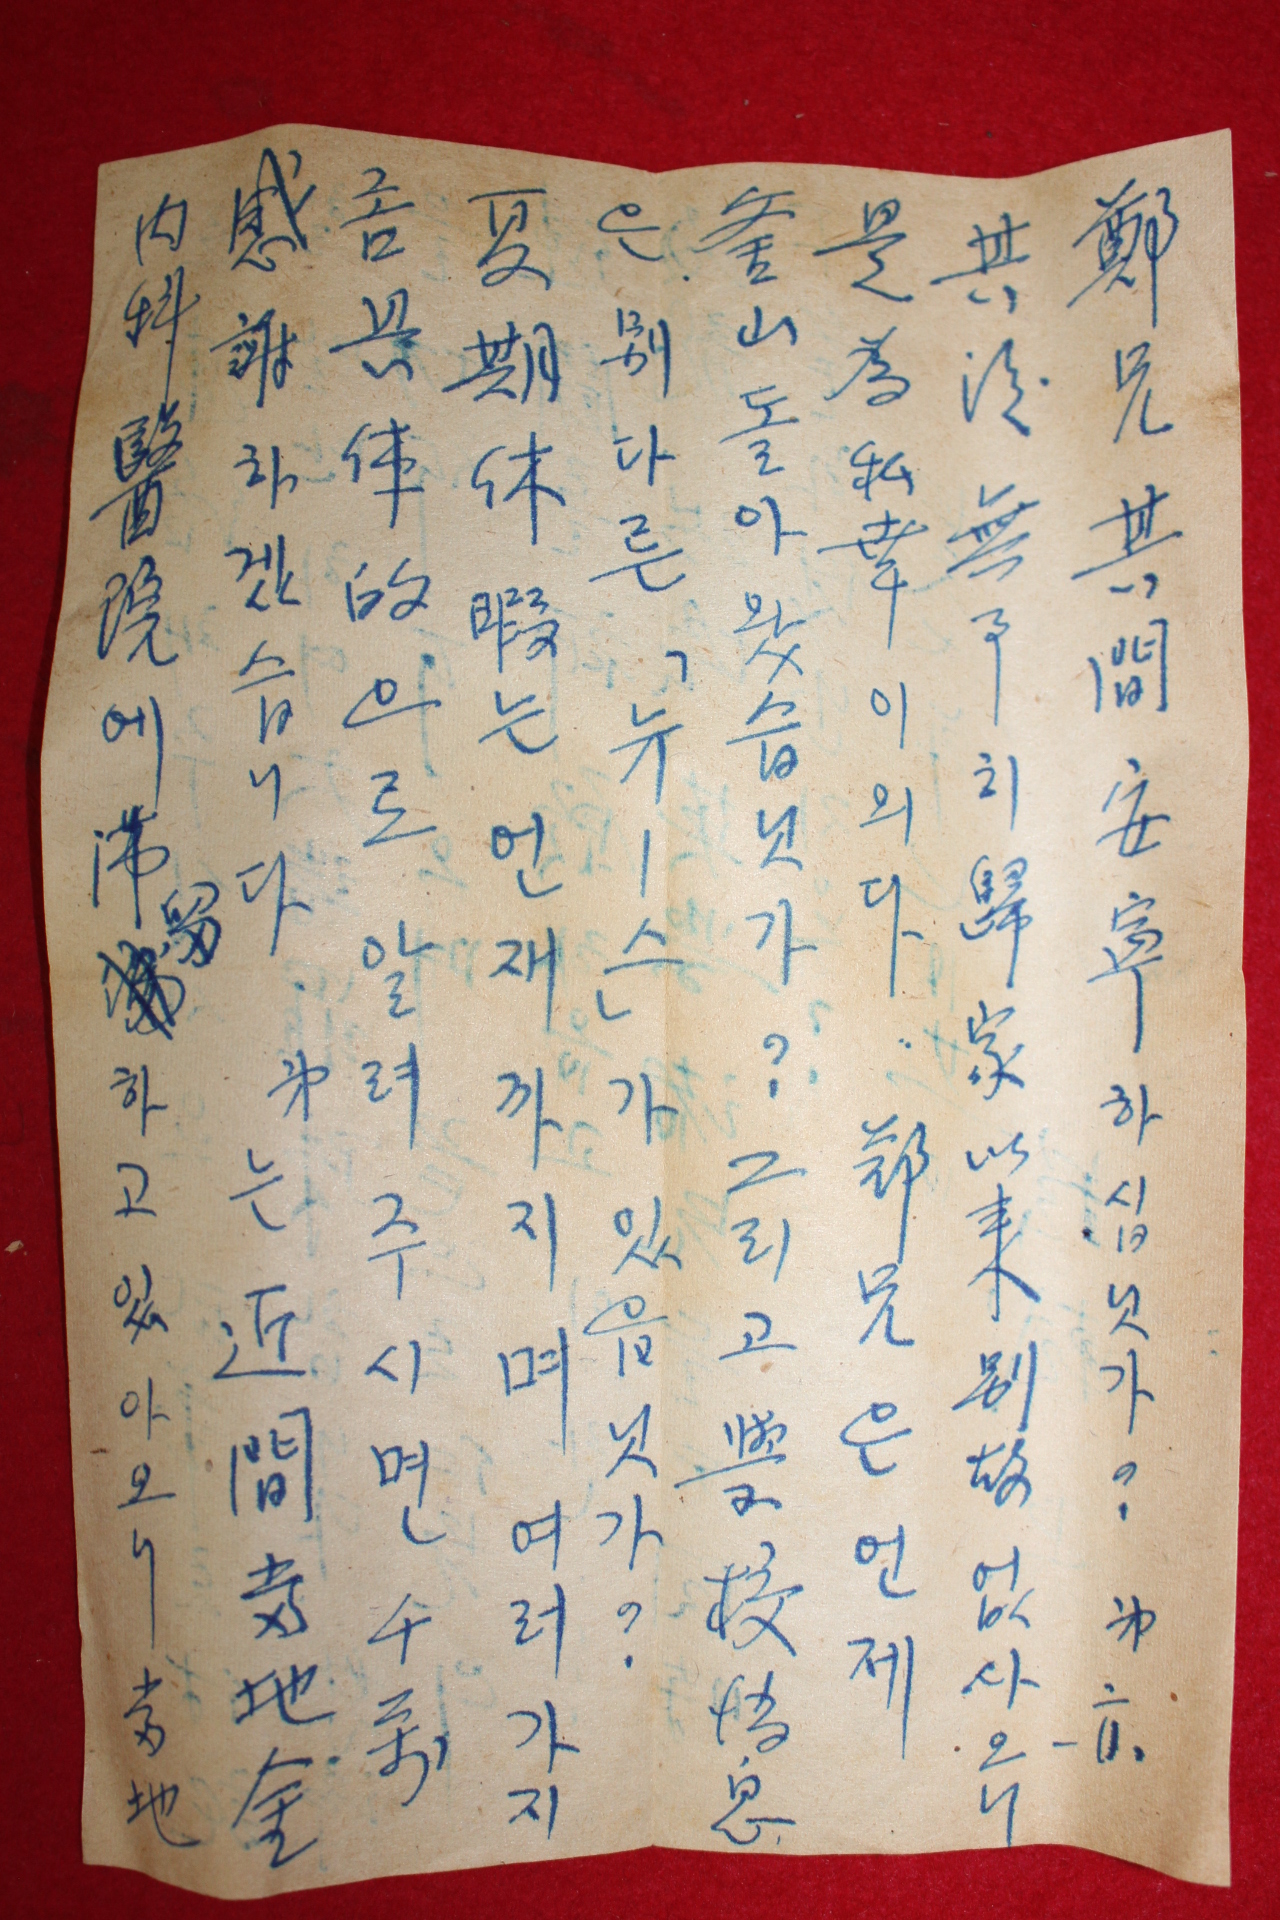 鄭兄 其間 安寧하심닛가? 弟亦
其後 無事히 歸家 以来 別故 없사오니
是為私幸이외다. 鄭兄은 언제
釜山 돌아왔습닛가? 그리고 學校 消息
은 別다른 「뉴ー스」가 있읍닛가?
夏期休暇는 언재까지며 여러가지
좀 具体的으로 알려주시면
感謝하겠습니다 弟는 近間 當地 金
內科醫院에 滞留하고 있아오니 當地